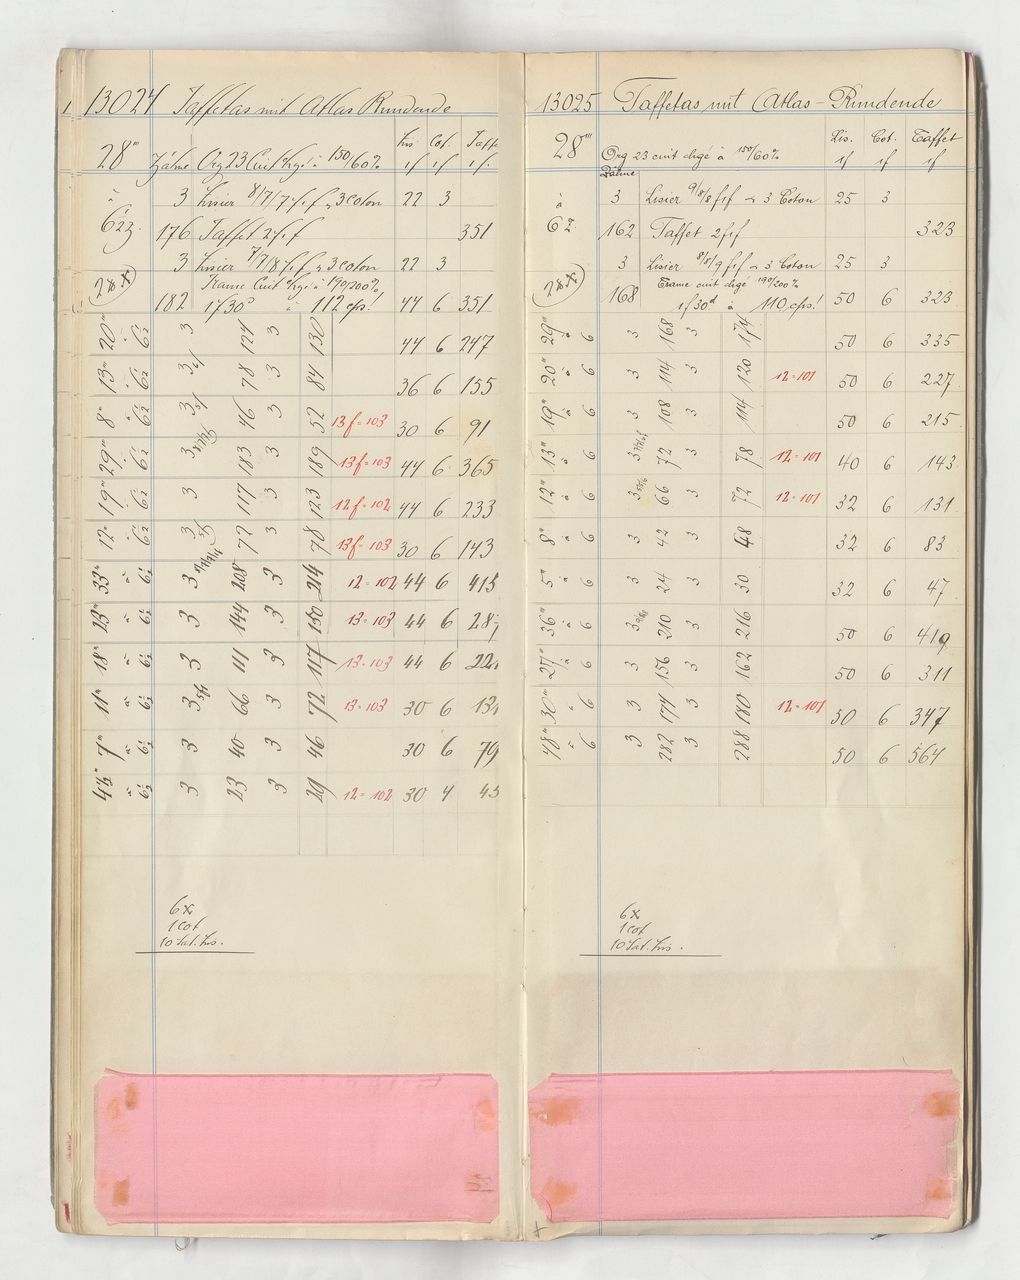 13024 Taffetas mit Atlas Rundende
Lis. Cot. Taffe
28''' Zähne Org 23 Cuit chgé à 150/60% 1f 1f 1f.
à 3 Lisier 8/7/7 f. f. 3 coton 22 3
6 Z. 176 Taffet 2 f. f 351
3 Lisier 7/7/8 f. f. 3 coton 22 3
28 x Trame Cuit chgé à 190/200%
182 1f 30 d à 112 cps! 44 6 351
20''' à 6 Z 3 124 3 130 44 6 247
13''' à 6 Z 3 78 3 84 36 6 155
8''' à 6 Z 3 46 3 52 13 f = 103 30 6 91
29''' à 6 Z 3 183 3 189 13 f = 103 44 6 365
19''' à 6 Z 3 117 3 123 12 f = 102 44 6 233
12''' à 6 Z 3 72 3 78 13 f = 103 30 6 143
33''' à 6 Z 3 208 3 214 12 = 102 44 6 415
23''' à 6 Z 3 144 3 150 13 = 103 44 6 287
18''' à 6 Z 3 111 3 117 13 = 103 44 6 221
11''' à 6 Z 3 5/4 66 3 72 13 = 103 30 6 131
7''' à 6 Z 3 40 3 46 30 6 79
à 6 Z 3 23 3 29 12 = 102 30 4 45
6 x
1 cot
10 Sat. Lis.
13025 Taffetas mit Atlas - Rundende
Lis. Cot. Taffet
28''' Org 23 cuit chgé à 150/60% 1f 1f 1f
Zähne
à 3 Lisier 9/8/8 f 1 f 3 Coton 25 3
6 Z. 162 Taffet 2 f 1 f 323
3 Lisier 8/8/9 f 1 f 3 Coton 25 3
28 x Trame cuit chgé 190/200%
168 1f 30 d à 110 cps! 50 6 323
29''' à 6 3 168 3 174 50 6 335
20''' à 6 3 114 3 120 12 = 101 50 6 227
19''' à 6 3 108 3 114 50 6 215
13''' à 6 3 72 3 78 12 = 101 40 6 143
12''' à 6 3 66 3 72 12 = 101 32 6 131
8''' à 6 3 42 3 48 32 6 83
5''' à 6 3 24 3 30 32 6 47
36''' à 6 3 210 3 216 50 6 419
27''' à 6 3 156 3 162 50 6 311
30''' à 6 3 174 3 180 12 = 101 50 6 347
48''' à 6 3 282 3 288 50 6 564
6 x
1 cot
10 Sat. Lis.